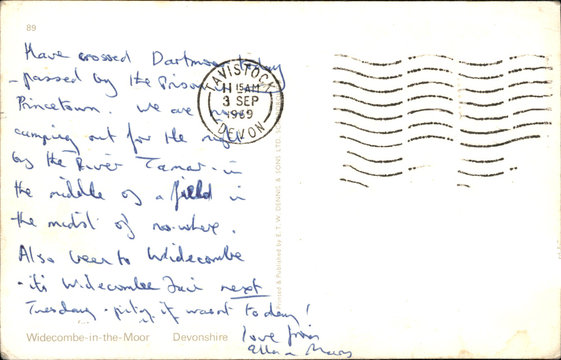 89
Have crossed Dartmoor today
- passed by the Prison in
Princetown. We are now
camping out for the night
by the River Tamar - in
the middle of a field in
the midst of no-where.
Also been to Widecombe
- its Widecombe Fair next
Tuesday - pity it wasnt today!
love from
TAVISTOCK
11 15AM
3 SEP
1969
DEVON
Printed & Published by E. T. W. DENNIS & SONS, LTD
Widecombe-in-the-Moor Devonshire